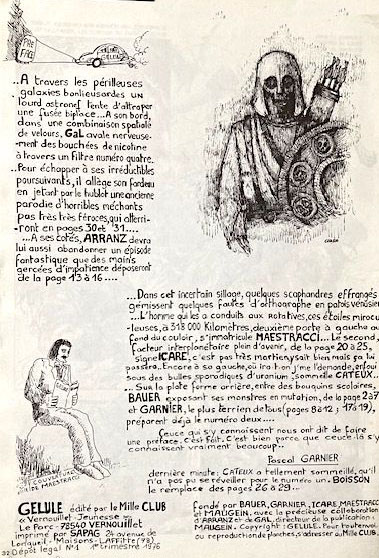 PRÉ
FACE
GELULE
..A travers les périlleuses
galaxies banlieusardes un
lourd astronef tente d'attraper
une fusée biplace...A son bord,
dans une combinaison spatiale
de velours, GAL avale nerveuse-
-ment des bouchées de nicotine
à travers un filtre numéro quatre.
..Pour échapper à ses irréductibles
poursuivants, il allège son fardeau
en jetant par le hublot une ancienne
parodie d'horribles méchants
pas très très féroces, qui atterri-
-ront en pages 30 et 31....
...A ses cotés, ARRANZ devra
lui aussi abandonner un épisode
fantastique que des mains
gercées d'impatience déposeront
de la page 13 à 16....
...Dans cet incertain sillage, quelques scaphandres effrangés
gémissent quelques fautes d'orthographe en patois vénusien
...L'homme qui les a conduits aux rotatives, ces étoiles mirocu-
-leuses, à 318 000 Kilomètres, deuxième porte à gauche au
fond du couloir, s'immatricule MAESTRACCI... Le second,
facteur interplanétaire plein d'avenir, de la page 20 à 25,
signe ICARE, c'est pas très martien, ysait bien, mais ça lui
passera. Encore à sa gauche, où ira t-on j'me l'demande, enfoui
sous des bulles sporadiques d'uranium, sommeille CATEUX...
... Sur la plate forme arrière, entre des bouquins scolaires,
BAUER exposant ses monstres en mutation, de la page 2 à 7
et GARNIER, le plus terrien de tous (pages 8 à 12; 17 à 19),
préparent déjà le numéro deux....
Ceuce qui s'y connaissent nous ont dit de faire
une préface. C'est fait. C'est bien parce que ceuce là s'y
connaissent vraiment beaucoup...
Pascal GARNIER
dernière minute; CATEUX a tellement sommeillé, qu'il
n'a pas pu se réveiller pour le numéro un. BOISSON
le remplace des pages 26 à 29...
COUVERTURE
DE MAESTRACCI
GELULE édité par le Mille CLUB
« Vernouillet-Jeunesse »
Le Parc - 78540 VERNOUILLET
imprimé par SAPAG 24 avenue de
Longueil - Maisons-LAFfitte (78)
Dépot légal N°1 1er trimestre 1976
fondé par BAUER, GARNIER, ICARE, MAESTRACCI
et MAUGEIN, avec la précieuse collaboration
d'ARRANZ et de GAL. directeur de la publication:
MAUGEIN. Copyright: GELULE. Pour toutenvoi
ou reproduction de planches, s'adresser au Mille CLUB.
32